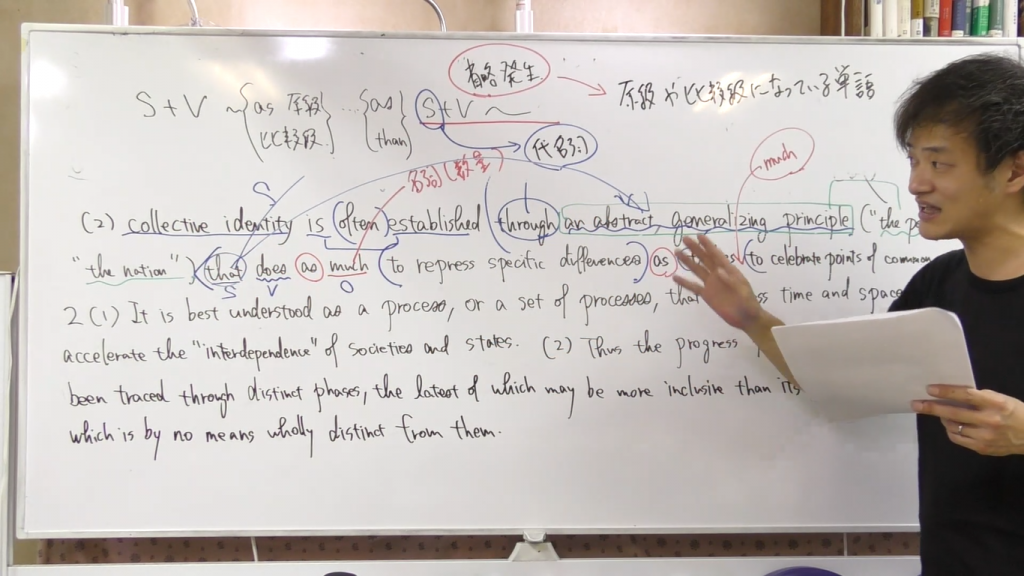 省略発生
S+V ~ {as 原級 … {as} S+V ~ → 原級や比較級になっている単語
{比較級} {than}
代名詞
much
S 名詞(数量)
(2) collective identity is (often) established (through an abstract, generalizing principle ("the
"the nation") (that does as much (to repress specific differences) as (to celebrate points of
S V O
2 (1) It is best understood as a process, or a set of processes, time and space
accelerate the "interdependence" of societies and states. (2) Thus the progress
been traced through distinct phases, the latest of which may be more inclusive than its
which is by no means wholly distinct from them.